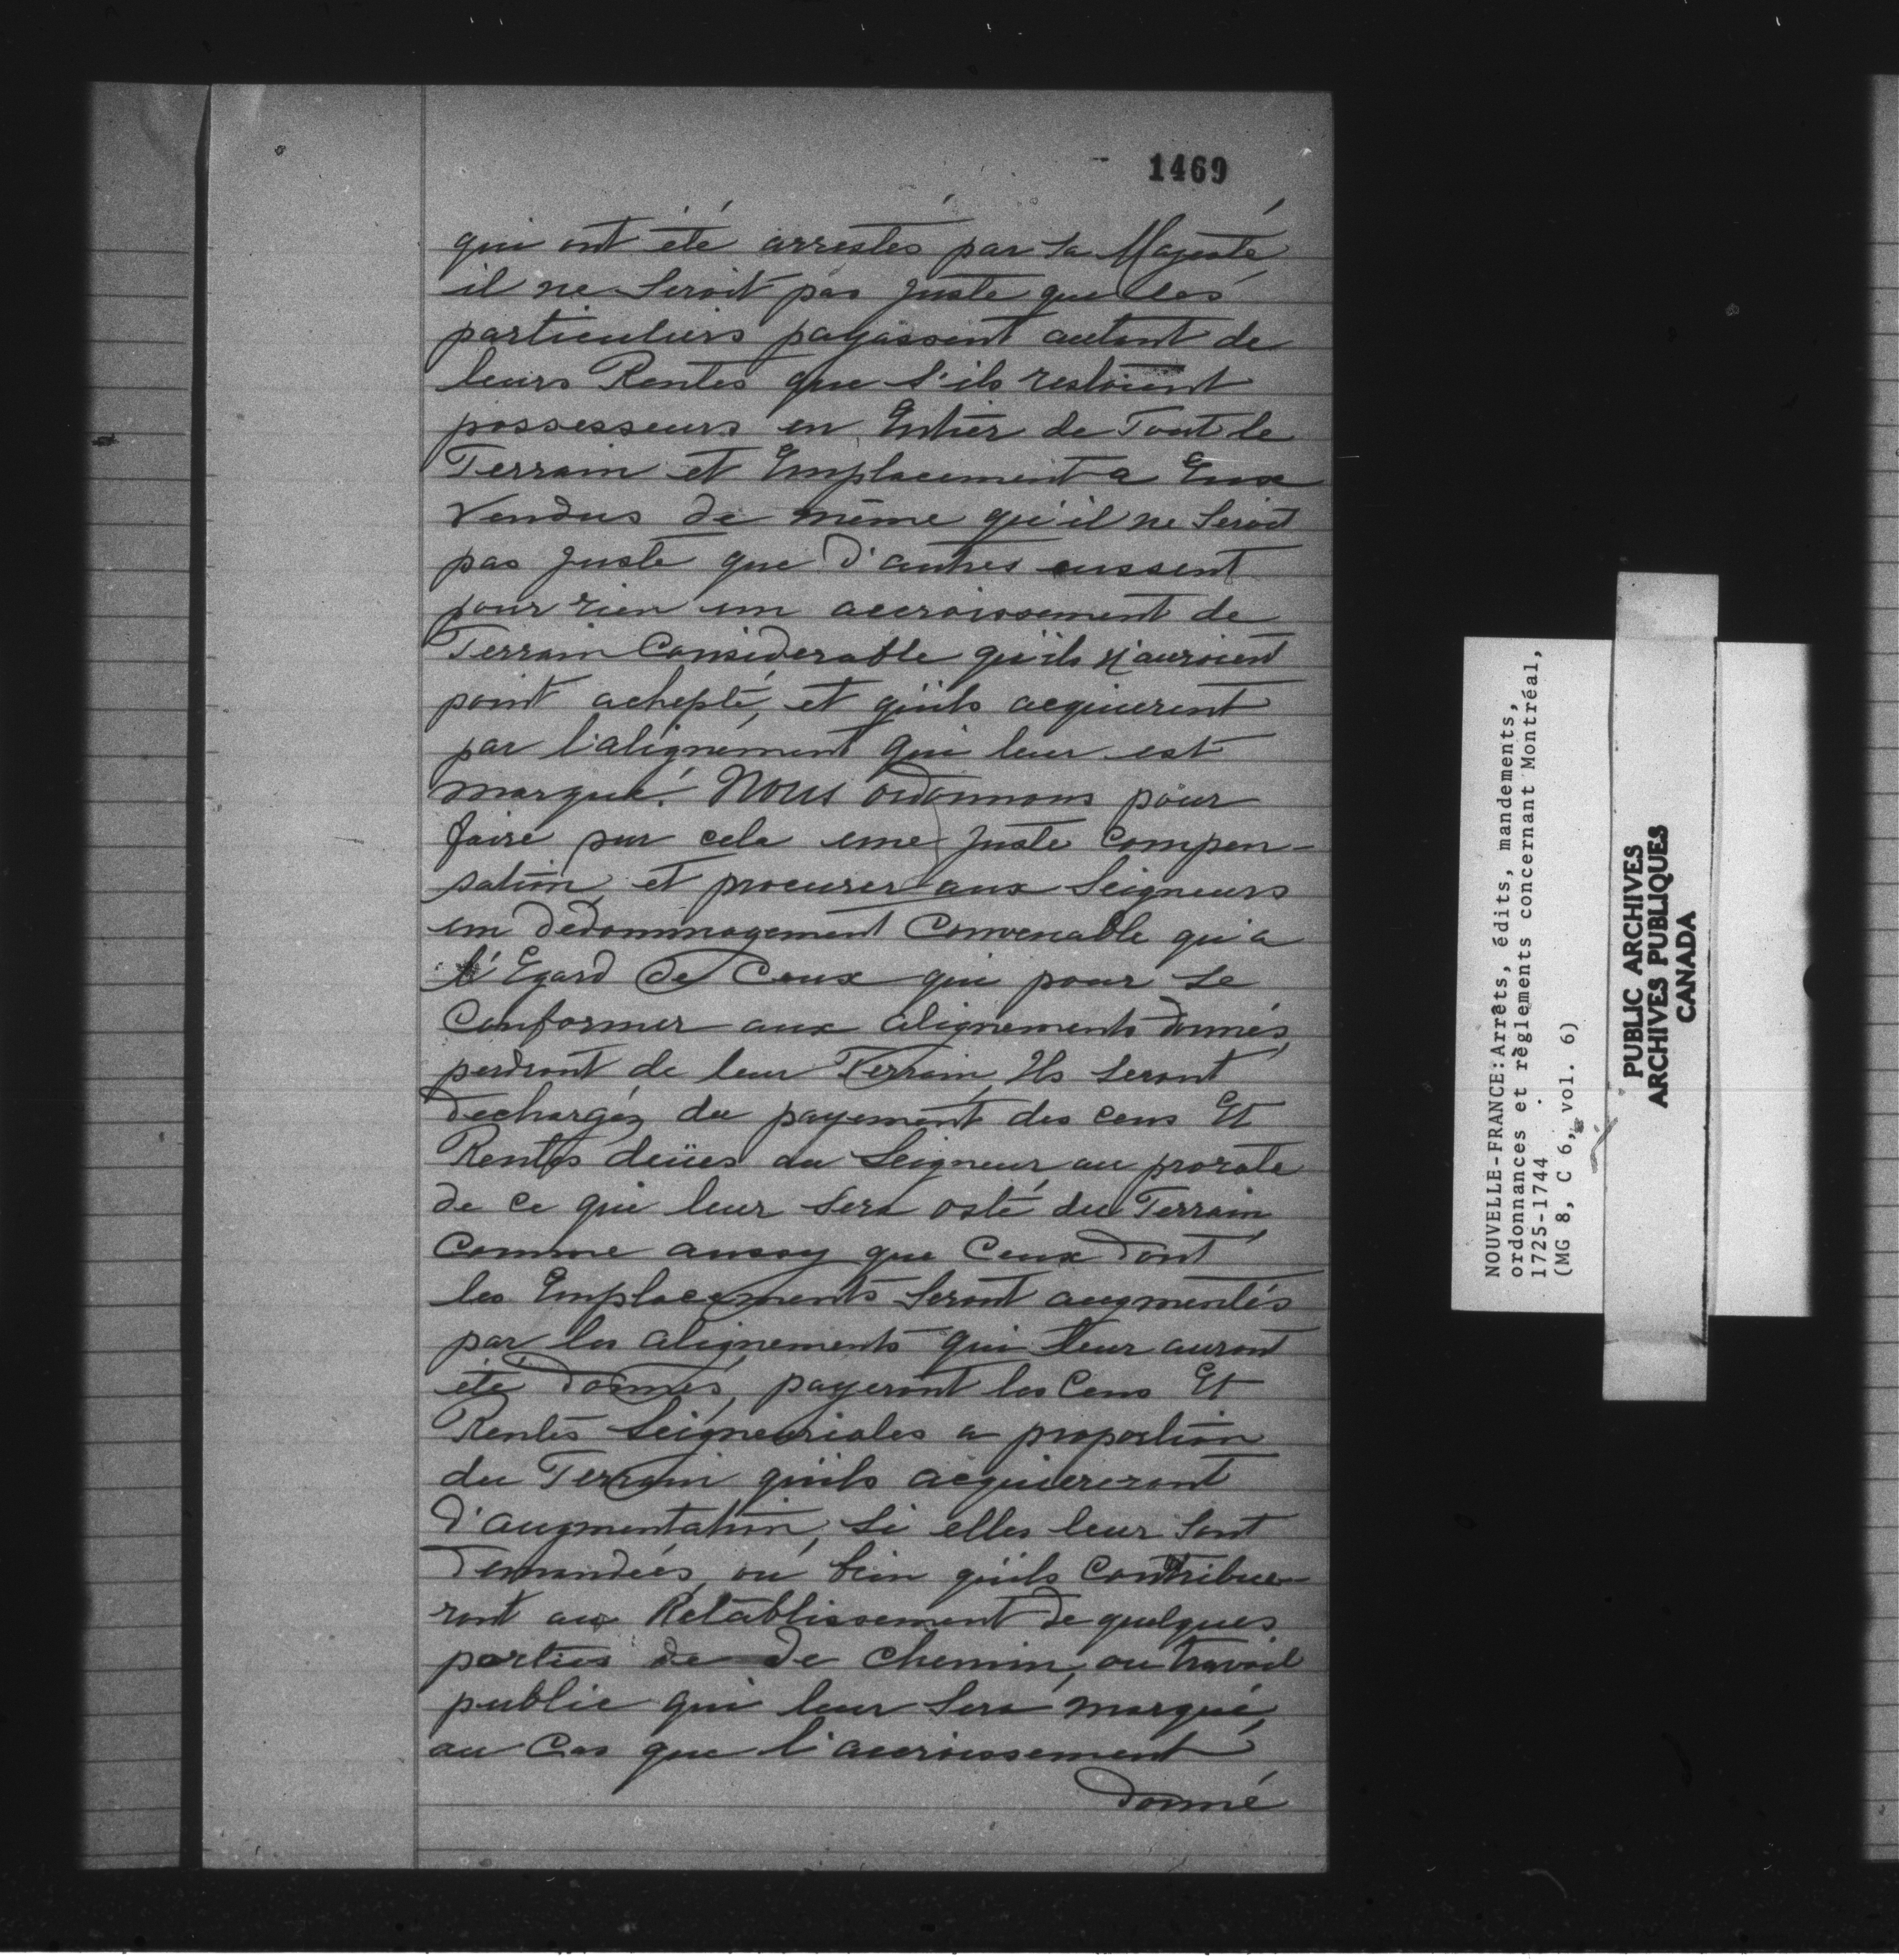 1469
qui ont été arrestés par Sa Majesté
il ne Seroit pas juste que les
particuliers payassent autant de
leurs Rentes que S'ils restoient
possesseurs en Entier de Tout le
Terrain et Emplacement a Eux
Vendus de même qu'il ne Seroit
pas Juste que d'autres eussent
pour rien un accroissement de
Terrain Considerable qu'ils n'auroient
point achepté, et qu'ils acquierent
par l'alignement qui leur est
marqué. Nous ordonnons pour
faire sur cela une Juste Compen-
sation, et procurer aux Seigneurs
un dedommagement Convenable qu'a
l'Egard de Ceux qui pour Se
Conformer aux alignements donnés,
perdront de leur Terrain, Ils Seront
dechargéz du payement des cens Et
Rentes deües au Seigneur au prorata
de ce qui leur Sera osté du Terrain,
Comme aussy que Ceux dont
les Emplacements Seront augmentés
par les alignements qui leur auront
été donnés, payeront les Cens Et
Rentes Seigneuriales a proportion
du Terrain qu'ils acquiereront
d'augmentation, Si elles leur Sont
demandées, ou bien qu'ils Contribue-
ront au Rétablissement de quelques
parties de de Chemin, ou travail
public qui leur Sera marqué,
au Cas que l'accroissement
donné
NOUVELLE-FRANCE:Arrêts, édits, mandements,
ordonnances et règlements concernant Montréal,
1725-1744
(MG 8, C 6, vol. 6)
PUBLIC ARCHIVES
ARCHIVES PUBLIQUES
CANADA